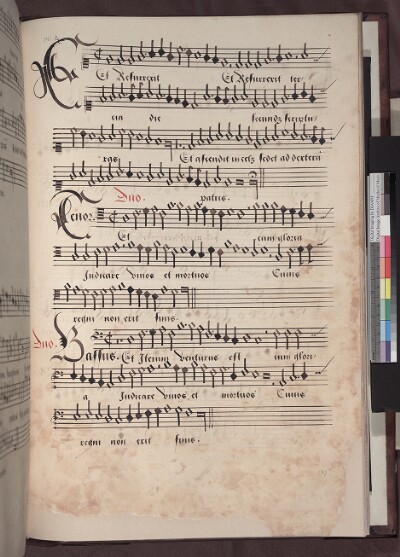 Et Resurrexit Et Resurrexit ter
cia die secundum scriptu
ras Et ascendit in celum sedet ad dexteram
Duo. patris.
Tenor.
Et cum gloria
Judicare vivos et mortuos Cuius
regni non erit finis.
Duo. Bassus. Et Iterum Venturus est cum glori
a Judicare vivos et mortuos Cuius
regni non erit finis.